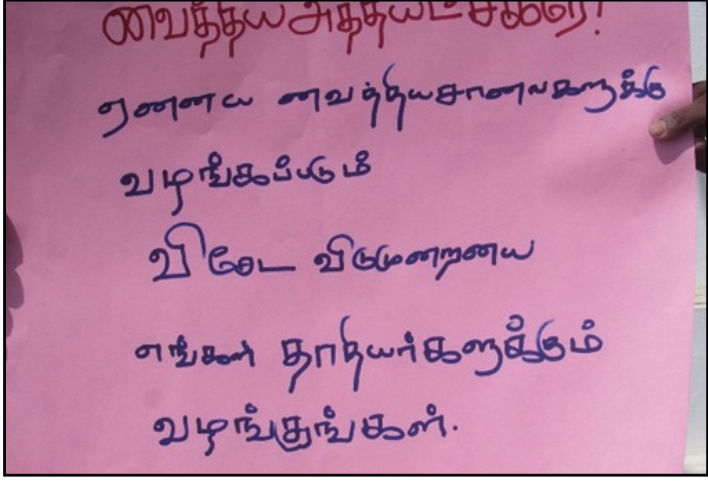 வைத்திய அத்தியட்சகரே!
ஏனைய வைத்தியசாலைகளுக்கு
வழங்கப்படும்
விசேட விடுமுறையை
எங்கள் தாதியர்களுக்கும்
வழங்குங்கள்.